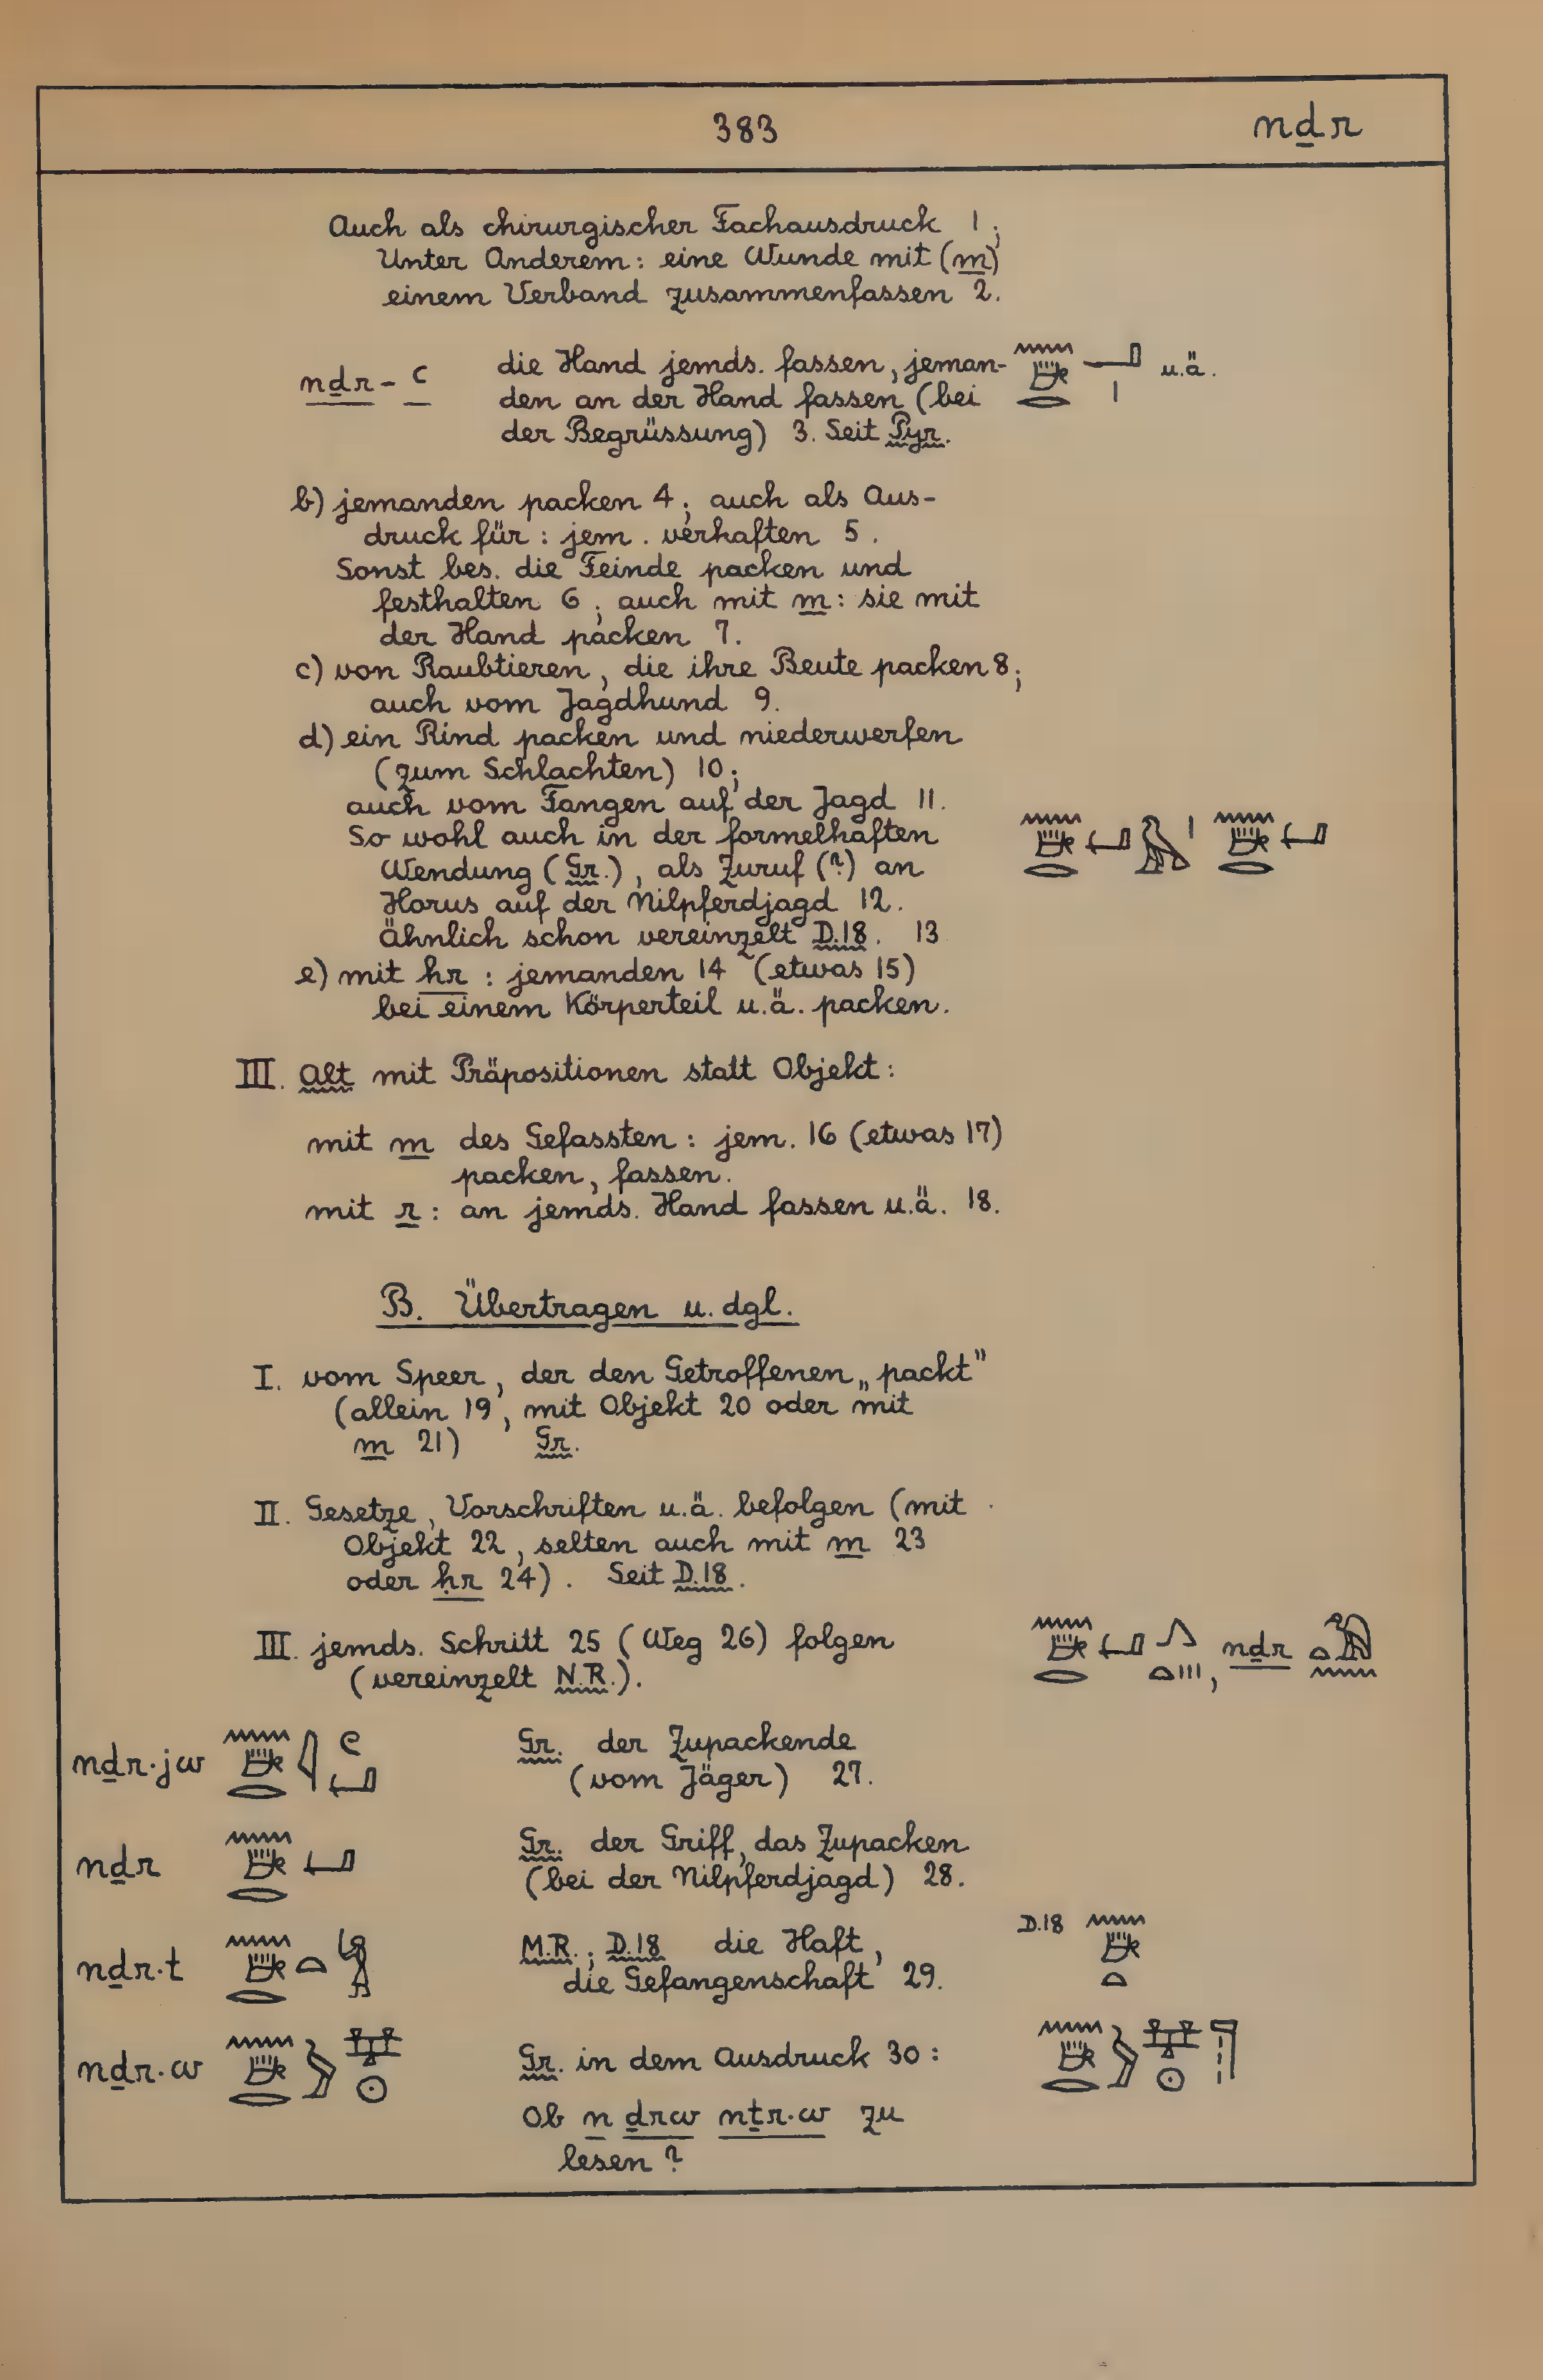 383 nḏr
Auch als chirurgischer Fachausdruck 1;
Unter Anderem: eine Wunde mit (m)
einem Verband zusammenfassen 2.
nḏr-ꜥ die Hand jemds. fassen, jeman- u.ä.
den an der Hand fassen (bei
der Begrüssung) 3. Seit Pyr.
b) jemanden packen 4; auch als Aus-
druck für: jem. verhaften 5.
Sonst bes. die Feinde packen und
festhalten 6; auch mit m: sie mit
der Hand packen 7.
c) von Raubtieren, die ihre Beute packen 8;
auch vom Jagdhund 9.
d) ein Rind packen und niederwerfen
(zum Schlachten) 10;
auch vom Fangen auf der Jagd 11.
So wohl auch in der formelhaften
Wendung (Gr.), als Zuruf (?) an
Horus auf der Nilpferdjagd 12.
Ähnlich schon vereinzelt D.18. 13
e) mit ḥr: jemanden 14 (etwas 15)
bei einem Körperteil u.ä. packen.
III. Alt mit Präpositionen statt Objekt:
mit m des Gefassten: jem. 16 (etwas 17)
packen, fassen.
mit r: an jemds. Hand fassen u.ä. 18.
B. Übertragen u. dgl.
I. vom Speer, der den Getroffenen „packt"
(allein 19, mit Objekt 20 oder mit
m 21) Gr.
II. Gesetze, Vorschriften u.ä. befolgen (mit
Objekt 22, selten auch mit m 23
oder ḥr 24). Seit D.18.
III. jemds. Schritt 25 (Weg 26) folgen , nḏr
(vereinzelt N.R.).
nḏr·jw Gr. der Zupackende
(vom Jäger) 27.
nḏr Gr. der Griff, das Zupacken
(bei der Nilpferdjagd) 28.
nḏr·t M.R.; D.18 die Haft, D.18
die Gefangenschaft 29.
nḏr·w Gr. in dem Ausdruck 30:
Ob n ḏrw nṯr·w zu
lesen?